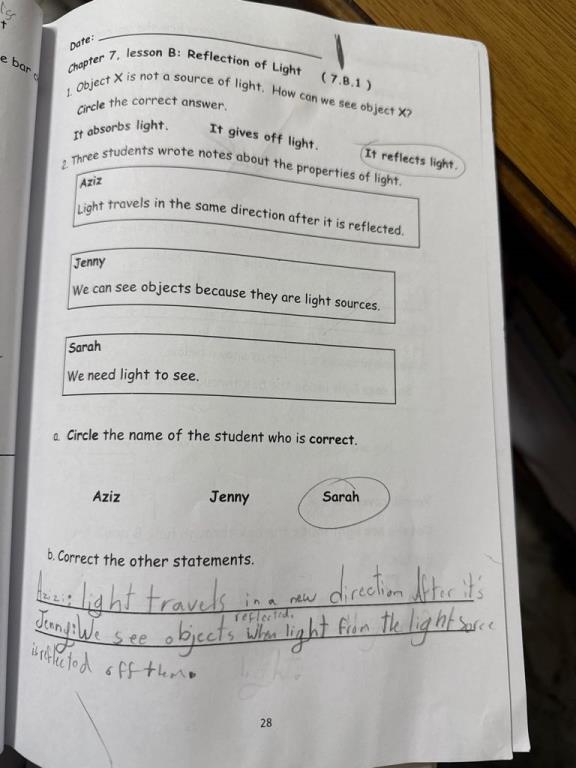 Date:
Chapter 7, lesson B: Reflection of Light (7.B.1)
1. Object X is not a source of light. How can we see object X?
Circle the correct answer.
It absorbs light. It gives off light. It reflects light.
2. Three students wrote notes about the properties of light.
Aziz
Light travels in the same direction after it is reflected.
Jenny
We can see objects because they are light sources.
Sarah
We need light to see.
a. Circle the name of the student who is correct.
Aziz Jenny Sarah
b. Correct the other statements.
light travels in a new direction After it's
reflected.
Jenny: We see objects when light from the light
is reflected off them.
28